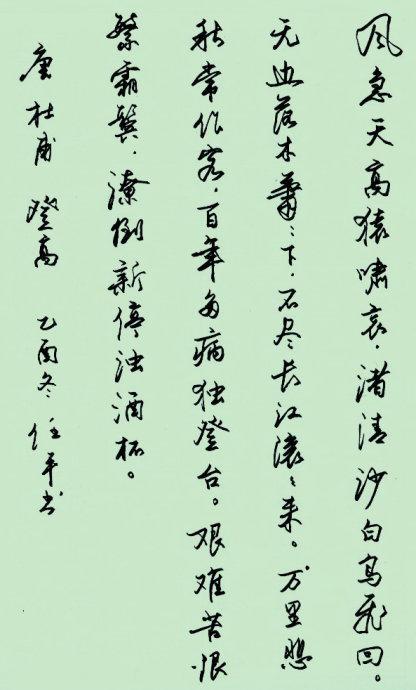 风急天高猿啸哀，渚清沙白鸟飞回。
无边落木萧々下，不尽长江滚々来。万里悲
秋常作客，百年多病独登台。艰难苦恨
繁霜鬓，潦倒新停浊酒杯。
唐杜甫 登高 乙酉冬 任平书